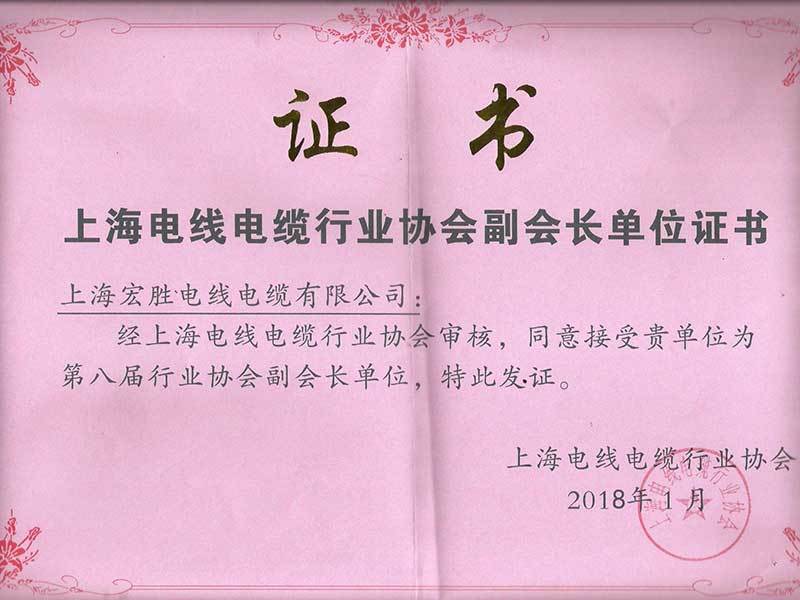 证书
上海电线电缆行业协会副会长单位证书
上海宏胜电线电缆有限公司:
经上海电线电缆行业协会审核，同意接受贵单位为
第八届行业协会副会长单位，特此发证。
上海电线电缆行业协会
2018年1月
上海电线电缆行业协会